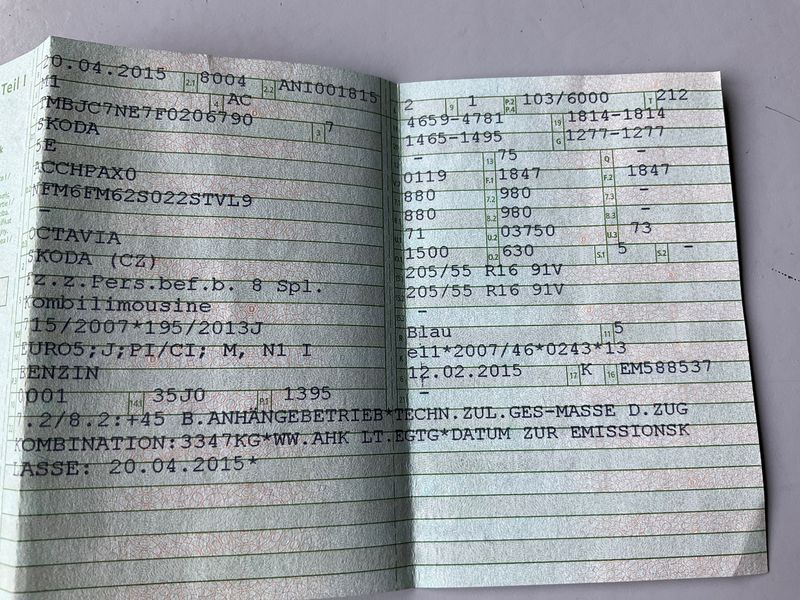 Teil I
20.04.2015 2.1 8004 2.2 ANI001815
M1 4 AC
TMBJC7NE7F0206790 3 7
SKODA
5E
ACCHPAX0
NFM6FM62S022STVL9
-
OCTAVIA
SKODA (CZ)
Fz.z.Pers.bef.b. 8 Spl.
Kombilimousine
715/2007*195/2013J
EURO5;J;PI/CI; M, N1 I
BENZIN
0001 14.1 35J0 P.1 1395
2 9 1 P.2 P.4 103/6000 T 212
4659-4781 19 1814-1814
1465-1495 G 1277-1277
- 13 75 Q -
0119 F.1 1847 F.2 1847
880 7.2 980 7.3 -
880 8.2 980 8.3 -
71 U.2 03750 U.3 73
1500 O.2 630 S.1 5 S.2 -
205/55 R16 91V
205/55 R16 91V
-
R Blau 11 5
K e11*2007/46*0243*13
6 12.02.2015 17 K 16 EM588537
21 -
7.2/8.2:+45 B.ANHÄNGEBETRIEB*TECHN.ZUL.GES-MASSE D.ZUG
KOMBINATION:3347KG*WW.AHK LT.EGTG*DATUM ZUR EMISSIONSK
LASSE: 20.04.2015*